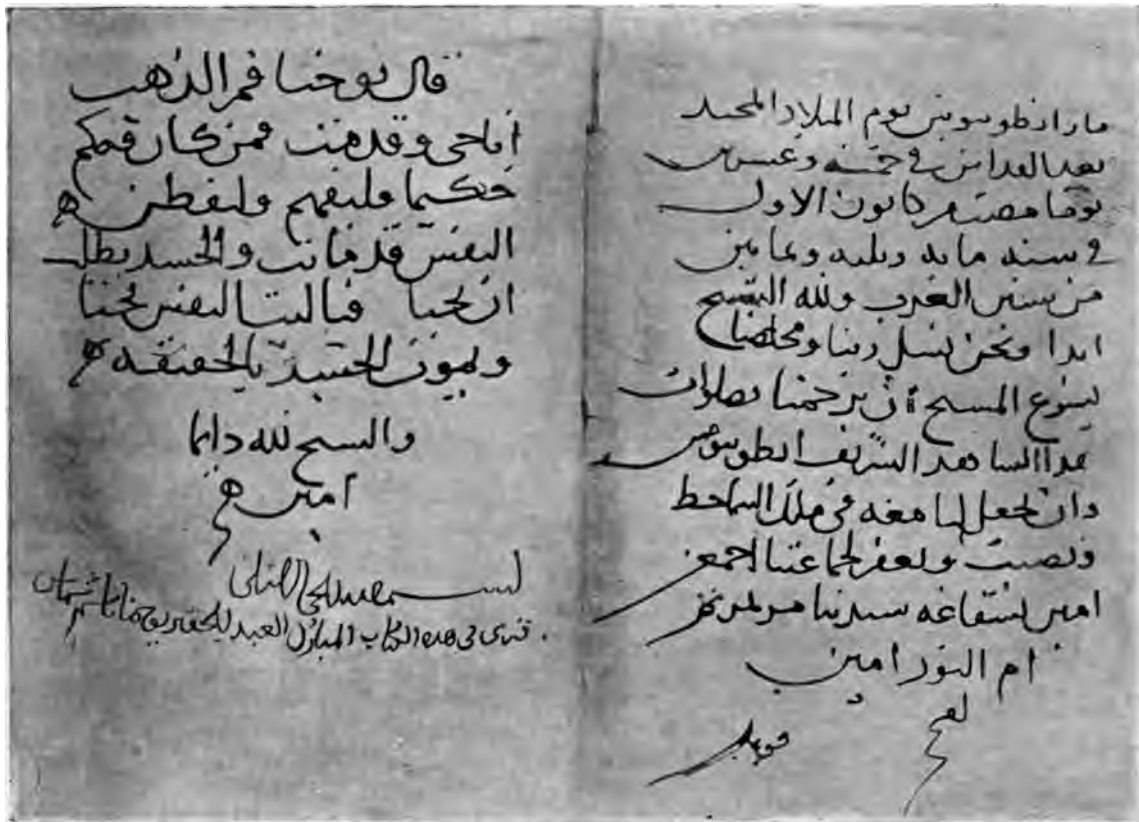 مار انطونيوس يوم الميلاد المجيد
بعد القداس في خمسه وعشرين
يوما مضت من كانون الاول
في سنه مايه وثلثه وثمانين
من سنين العرب ولله التسبيح
ابدا ونحن نسل ربنا ومخلصنا
يسوع المسيح ان يرحمنا بصلوات
هدا الساهد الشريف انطونيوس
وان يجعل لنا معه في ملك السما حظ
ونصيب ويغفر لجماعتنا اجمعين
امين بشفاعه ستنا مرتمريم
ام النور امين
قال يوحنا فم الذهب
انا حى وقد مت فمن كان فيكم
حكيما فليفهم وليفطن
النفس قد ماتت والجسد يطلب
ان يحيا فياليت النفس تحيا
ويموت الجسد بالحقيقه
والسبح لله دايما
امين
بسم الله الحي
قرى في هده الكتاب المبارك العبد الحقير يوحنا باسم شماس